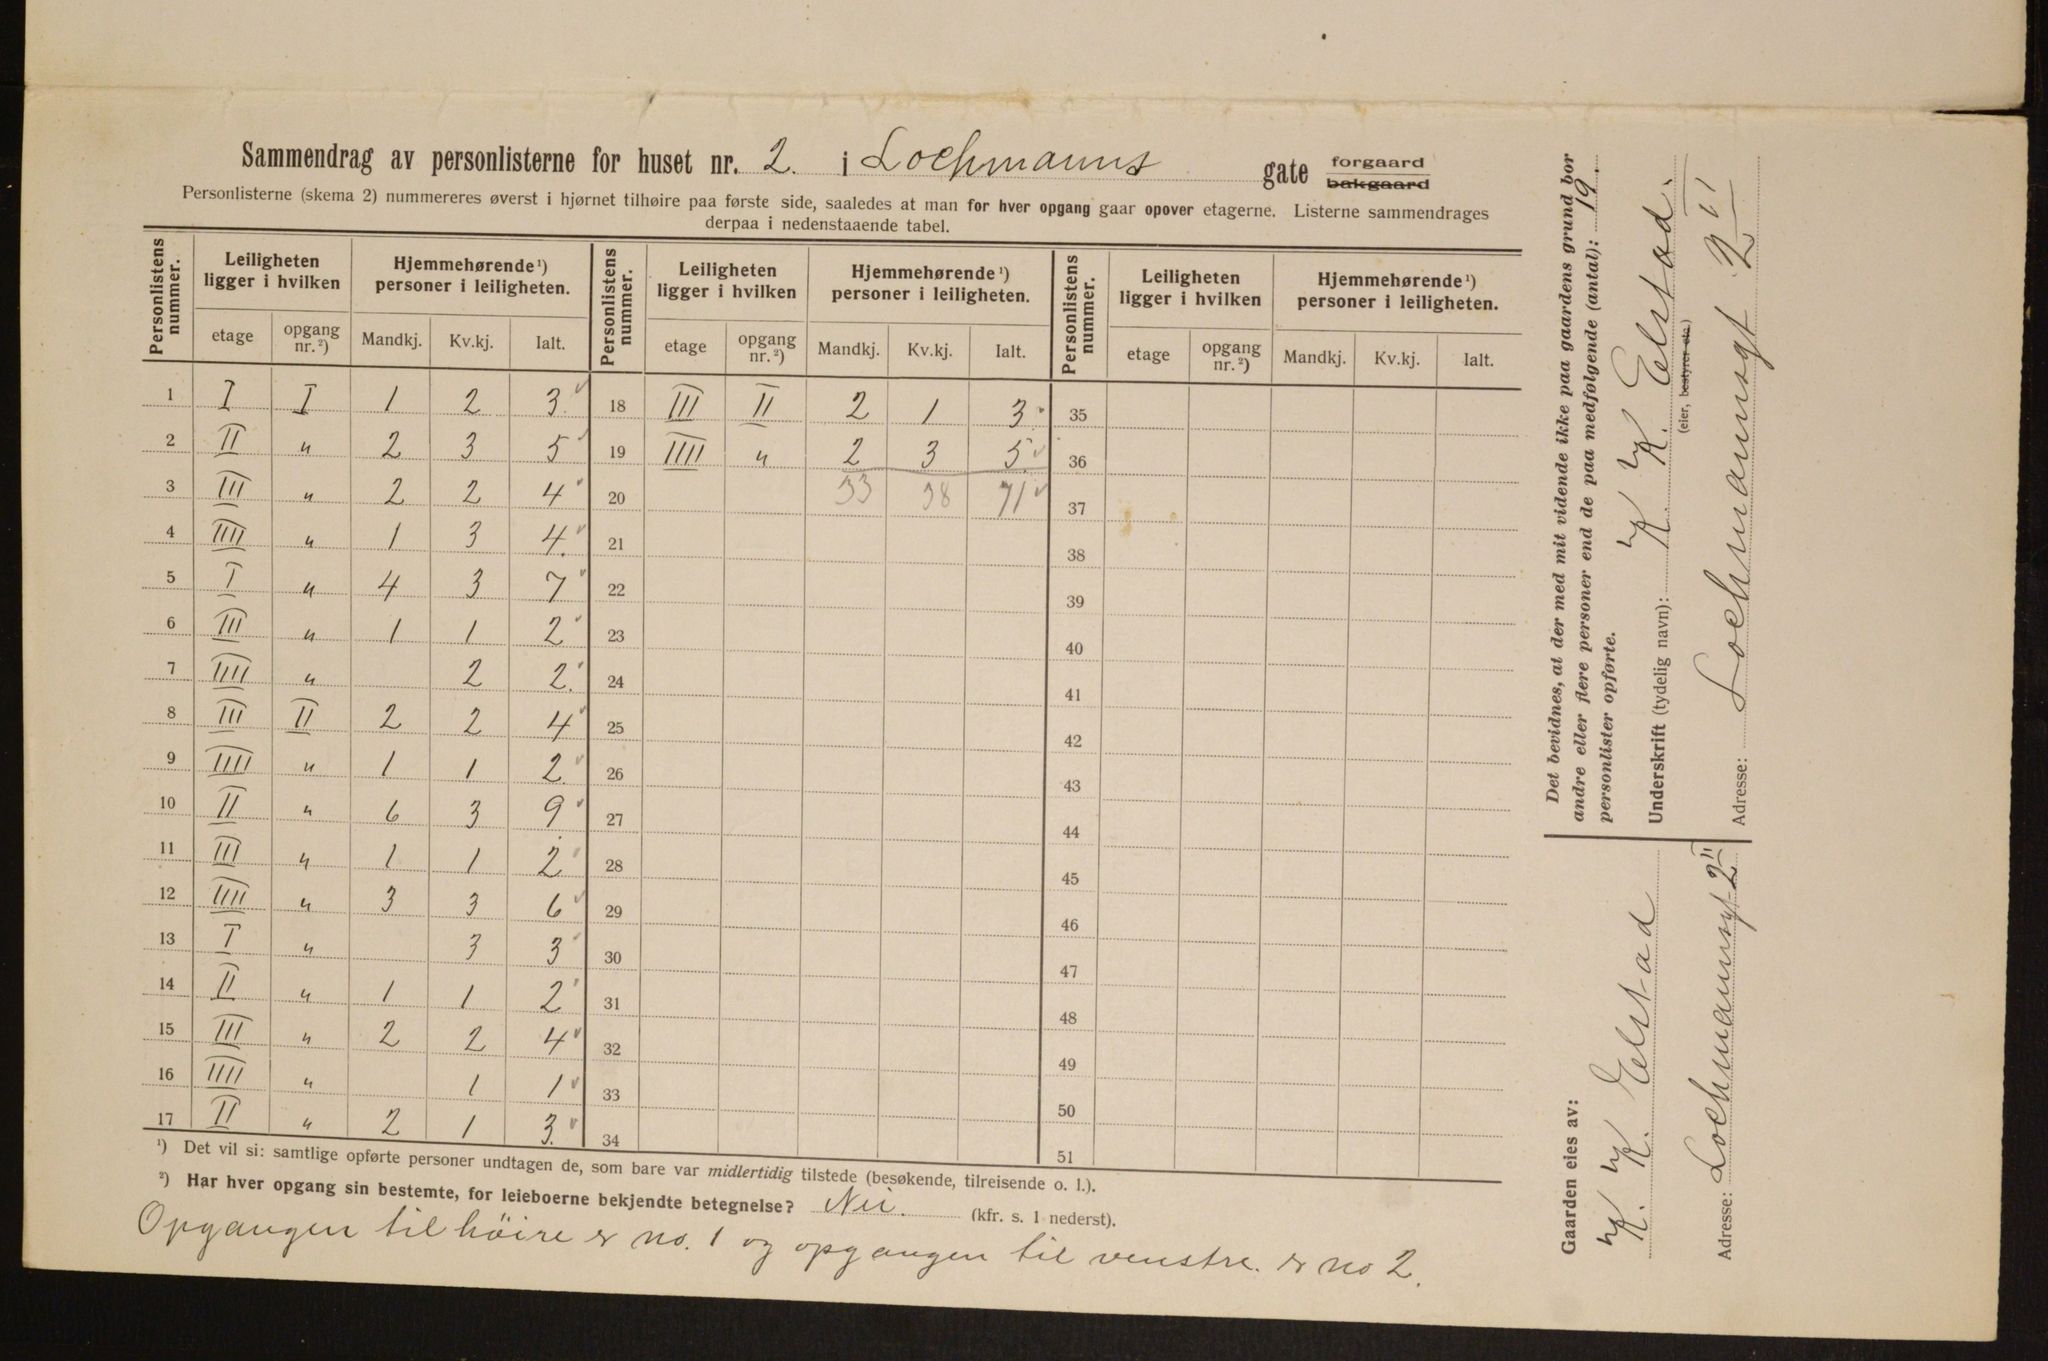 Sammendrag av personlisterne for huset nr. 2. i Lochmanns gate forgaard bakgaard
Personlisterne (skema 2) nummereres øverst i hjørnet tilhøire paa første side, saaledes at man for hver opgang gaar opover etagerne. Listerne sammendrages
derpaa i nedenstaaende tabel.
Personlistens nummer. Leiligheten ligger i hvilken Hjemmehørende¹) personer i leiligheten. Personlistens nummer. Leiligheten ligger i hvilken Hjemmehørende¹) personer i leiligheten. Personlistens nummer. Leiligheten ligger i hvilken Hjemmehørende¹) personer i leiligheten.
etage opgang nr.²) Mandkj. Kv.kj. Ialt. etage opgang nr.²) Mandkj. Kv.kj. Ialt. etage opgang nr.²) Mandkj. Kv.kj. Ialt.
1 I I 1 2 3. 18 III II 2 1 3. 35
2 II " 2 3 5 19 IIII " 2 3 5. 36
3 III " 2 2 4 20 33 38 71 37
4 IIII " 1 3 4. 21 38
5 I " 4 3 7 22 39
6 III " 1 1 2 23 40
7 IIII " 2 2. 24 41
8 III II 2 2 4 25 42
9 IIII " 1 1 2 26 43
10 II " 6 3 9 27 44
11 III " 1 1 2 28 45
12 IIII " 3 3 6 29 46
13 I " 3 3 30 47
14 II " 1 1 2 31 48
15 III " 2 2 4 32 49
16 IIII " 1 1 33 50
17 II " 2 1 3. 34 51
¹) Det vil si: samtlige opførte personer undtagen de, som bare var midlertidig tilstede (besøkende, tilreisende o. l.).
²) Har hver opgang sin bestemte, for leieboerne bekjendte betegnelse? Nei. (kfr. s. 1 nederst).
Opgangen til höire er no. 1 og opgangen til venstre er no 2.
Det bevidnes, at der med mit vidende ikke paa gaardens grund bor
andre eller flere personer end de paa medfølgende (antal): 19.
personlister opførte.
Underskrift (tydelig navn): K. K. Elstad.
(eier, bestyrer etc.)
Adresse: Lochmannsgt 2 II
Gaarden eies av:
K. K. Elstad
Adresse: Lochmannsgt 2 II